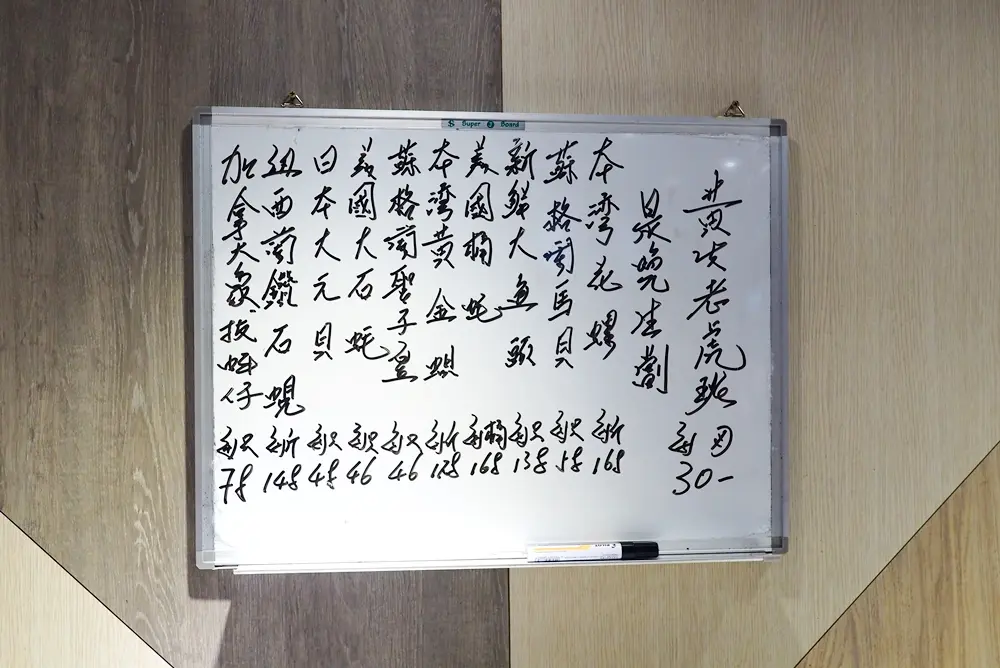 Super Board
黃皮老虎斑
30-
是晚生劏
本灣花螺
每斤
168
蘇格蘭馬貝
每只
58
新鮮大魚頭
每只
138
美國桶蚝
每桶
168
本灣黄金蜆
每斤
128
蘇格蘭聖子皇
每只
46
美國大石蚝
每只
46
日本大元貝
每只
48
紐西蘭鑽石蜆
每斤
148
加拿大象拔蚌仔
每只
78